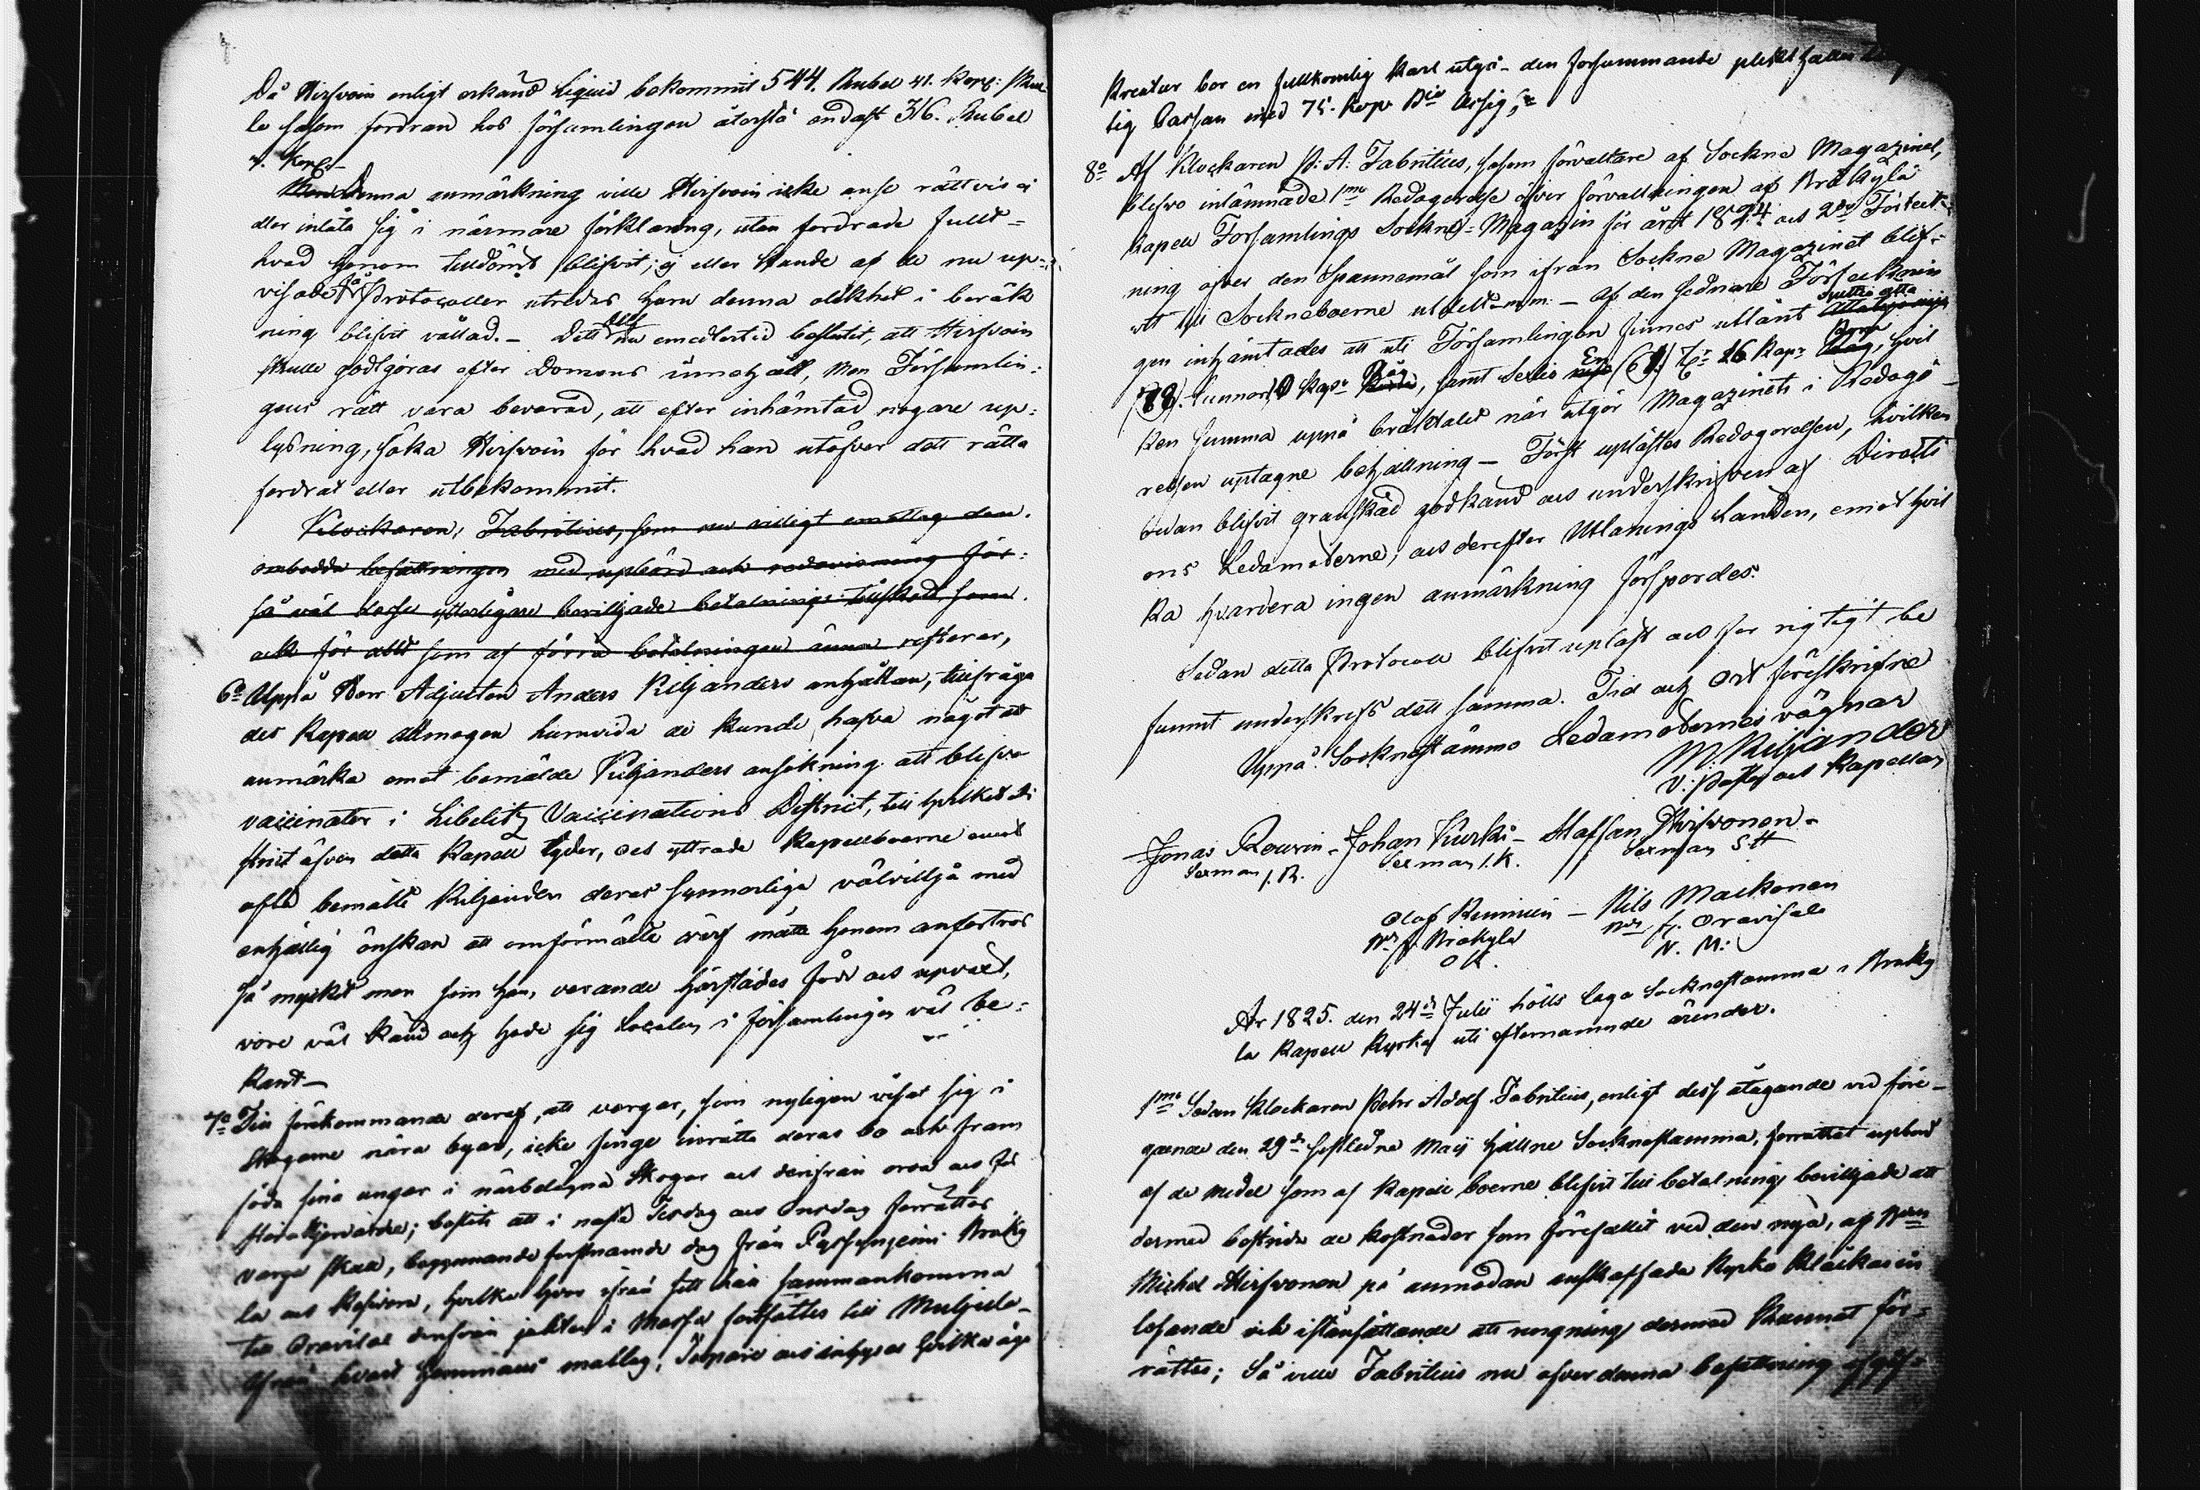 Då Hirfvoin enligt erkänd Liquid bekommit 544. Rubel 41. Kop: skul-
le såsom fordran hos församlingen återstå endast 316. Rubel
Kop:
Denna anmärkning ville Hirfvoin icke anse rättvis ei
ller inlåta sig i närmare förklaring, utan fordrade fullt
hvad honom tilldömt blifvit; ej eller kunde af de nu up-
visade Protocoller utredas huru denna olikhet i beräk
ning blifvit vållad. - Dett nu emedlertid beslutit, att Hirfvoin
skulle godtgöras efter Domens innehåll, men Församlin:
gens rätt vara bevarad, att efter inhämtad nogare up:
lysning, söka Hirfvoin för hvad han utöfver dett rätta
fordrat eller utbekommit.
Klockaren, Fabritius, som nu villigt emottog den
ombedda befattningen med upbörd och redovisning för:
så väl desse ytterligare bevilljade betalnings tillskott som
ock för allt som af förra betalningen ännu resterar,
6o Uppå Herr Adjuncten Anders Kiljanders anhållan, tillfråga
des Kapell Allmogen huruvida de kunde hafva något att
anmärka emot bemälde Kiljanders ansökning att blifva
vaccinator i Libelitz Vaccinations District, till hvilket Di
strict äfven detta Kapell lyder, och yttrade Kapellboerne emot
ofta bemälte Kiljander deras synnerliga välvillja med
enhällig önskan att omförmälte värf måtte honom anförtros
så mycket mer som han, varande härstädes född och upväxt,
vore väl känd och hade sig Localen i församlingen väl be:
kant-
7o Till förekommande deraf, att vargar, som nyligen visat sig i
Skogarne nära byar, icke finge inrätta deras bo och fram
föda sina ungar i närbelägna Skogar och derifrån oroa och för
; beslöts att i nästa Tisdag och Onsdag förrättas
varga skall, begynnande förstnämde dag från Bräky
la och , hvilka hvar ifrån sitt håll sammankomma
till Oravisal derifrån jakten i Massa fortsättes till
ifrån hvart Hemmans matlag, och hvilka äga
Kreatur bör en fullkomlig Karl utgå - den försummande plikt fälles
tig Carsan med 75. Kop. Bco Assig;
8o Af Klockaren P: A: Fabritius, såsom förvaltare af Sockne Magazinet,
blefvo inlämnade 1mo Redogörelse öfver förvaltningen af Bräkylä
Kapell Församlings Sockne-Magazin för året 1824 och 2do Förteck-
ning öfver den Spannemål som ifrån Sockne Magazinet blif-
vit till Sockneboerne utdelt m.m. - Af den sednare Förtecknin
gen inhämtades att uti Församlingen finnes utlånt Sjutio åtta
(78) Tunnor 10 Kap: Råg, samt Sextio En (61.) Tr 26 Kapr Korn, hvil
ken Summa uppå bråktalet när utgör Magazinets i Redogö
relsen uptagne behållning - Först uplästes Redogörelsen, hvilken
redan blifvit granskad godkänd och underskrifven af Directi
ons Ledamöterne, och derefter Utlånings Landen, emot hvil
ka hvardera ingen anmärkning försporđes.
Sedan detta Protocoll blifvit upläst och för rigtigt be
funnit underskrefs dett samma. Tid och Ort föreskrifne
Uppå Socknestämmo Ledamöternes vägnar
M. Kiljander
V: Past: och Kapellan
Jonas Rouvin - Johan Kurki - Staffan Hirfvonen -
Sexman J. R. Sexman I. K. Sexman S H
Olof Reuninen - Nils Maekonen
Brakyla Oravisalo
O R. N. M:
År 1825. den 24de Julii hölls laga Socknestämma i Bräky
la Kapell Kyrka uti efternämnde ärender.
1mo Sedan Klockaren Pehr Adolf Fabritius, enligt dess åtagande vid före-
gående den 29de sistledne Maij hållne Socknestämma, förrättat upbörd
af de medel som af Kapell boerne blifvit till betalning bevilljade att
dermed bestrida de kostnader som förefallit vid den nya, af
Michel Hirfvonen på anmodan anskaffade Kyrko Klockan in
lösande och iståndsättande att ringning dermed kunnat för-
rättas; Så ville Fabritius nu öfver denna befattning afgif-